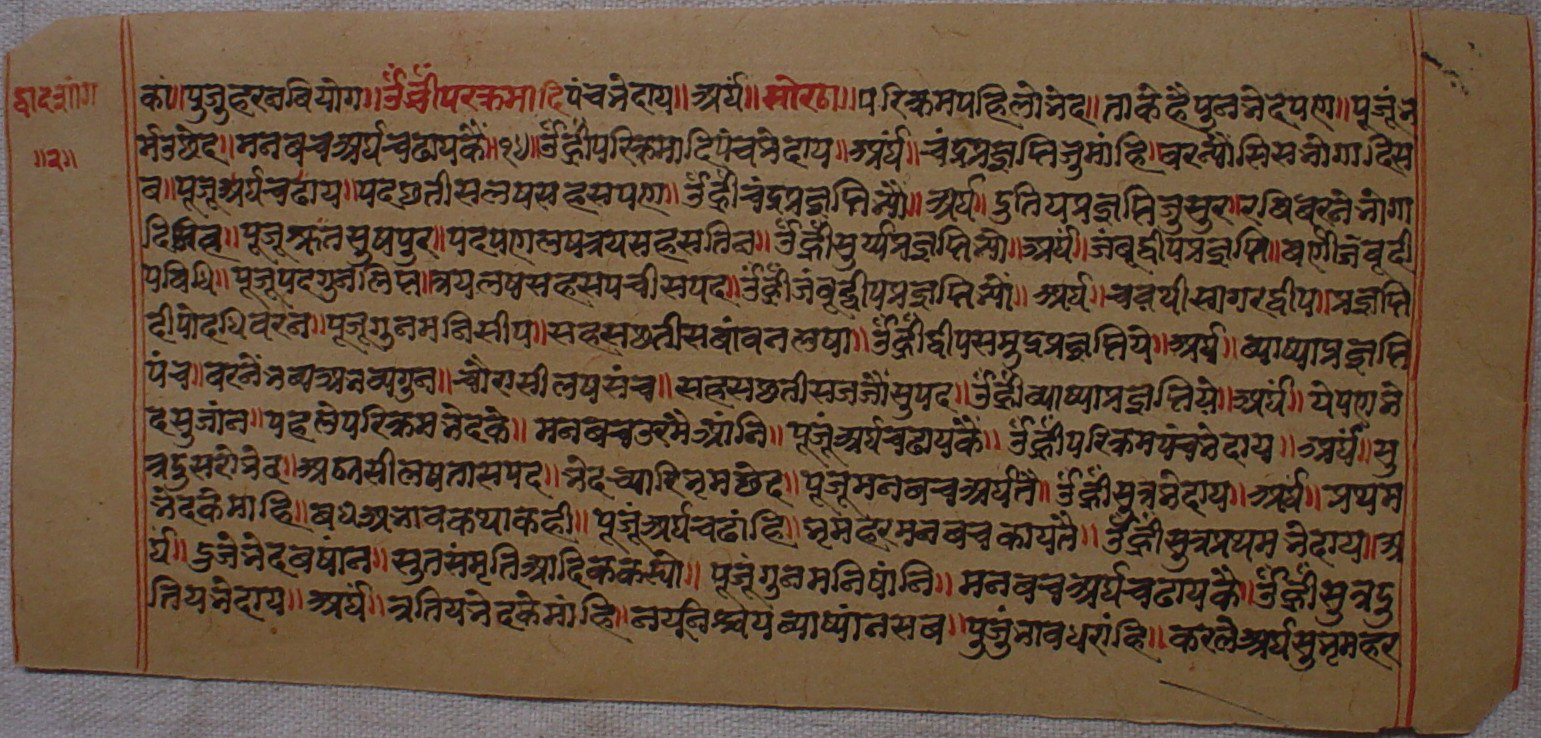 द्वादशांग
॥२॥
कां॥पुजुहरषबियोग॥ॐह्रींपरक्रमादिपंचभेदाय॥अर्घं॥सोरठा॥परिक्रमपहिलोभेद॥ताकेहैपुनभेदपण॥पूजूंभ
र्मउछेद॥मनबचअर्घचढायकैं॥१५॥ॐह्रींपरिक्रमादिपंचभेदाय॥अर्घं॥चंद्रप्रज्ञप्तिजुमांहि॥बरन्यौससिसभोगादिस
ब॥पूजूअर्घचढाय॥पदछतीसलषसहसपण॥ॐह्रींचंद्रप्रज्ञप्तिभ्यो॥अर्घं॥दुतियप्रज्ञप्तिजुसुर॥रबिबरनैभोगा
दिसब॥पूजूश्रुतसुषपुर॥पदपणलषत्रयसहसतिन॥ॐह्रींसुर्य्यप्रज्ञप्तिभ्यो॥अर्घं॥जंबूद्वीपप्रज्ञप्ति॥बर्णीजंबूदी
पबिधि॥पूजूपदगुनलिप्त॥त्रयलषसहसपचीसपद॥ॐह्रींजंबूद्वीपप्रज्ञप्तिभ्यों॥अर्घं॥चवथीसागरद्वीप॥प्रज्ञप्ति
दीपोदधिबरन॥पूजूगुनमनिसीप॥सहसछतीसबांवनलषा॥ॐह्रींद्वीपसमुद्रप्रज्ञप्तिये॥अर्घं॥ब्याष्याप्रज्ञप्ति
पंच॥बरनैंभब्यअभब्यगुन॥चौरासीलषसंच॥सहसछतीसजजौंसुपद॥ॐह्रींब्याष्याप्रज्ञप्तिये॥अर्घं॥येपणभे
दसुजांन॥पहलेपरिक्रमभेदके॥मनबचउरमैंआंनि॥पूजूंअर्घचढायकैं॥ॐह्रींपरिक्रमपंचभेदाय॥अर्घं॥सु
त्रदुसरोभेद॥अठासीलषतासपद॥भेदच्यारिभृमछेद॥पूजूमनबचअर्घतैं॥ॐह्रींसुत्रभेदाय॥अर्घं॥प्रथम
भेदकेमाहि॥बधअभावकथाकही॥पूजूंअर्घचढांहि॥भृमहरमनबचकायतैं॥ॐह्रींसुत्रप्रथमभेदाय॥अ
र्घं॥दुजेभेदबषांन॥स्रुतसंमृतिआदिककस्यो॥पूजूंगुनमनिषांनि॥मनबचअर्घचढायकै॥ॐह्रींसुत्रदु
तियभेदाय॥अर्घं॥त्रतियभेदकेमांहि॥नयनिश्चयब्याष्यांनसब॥पुजुंभावधरांहि॥करलेअर्घसुभृमहर